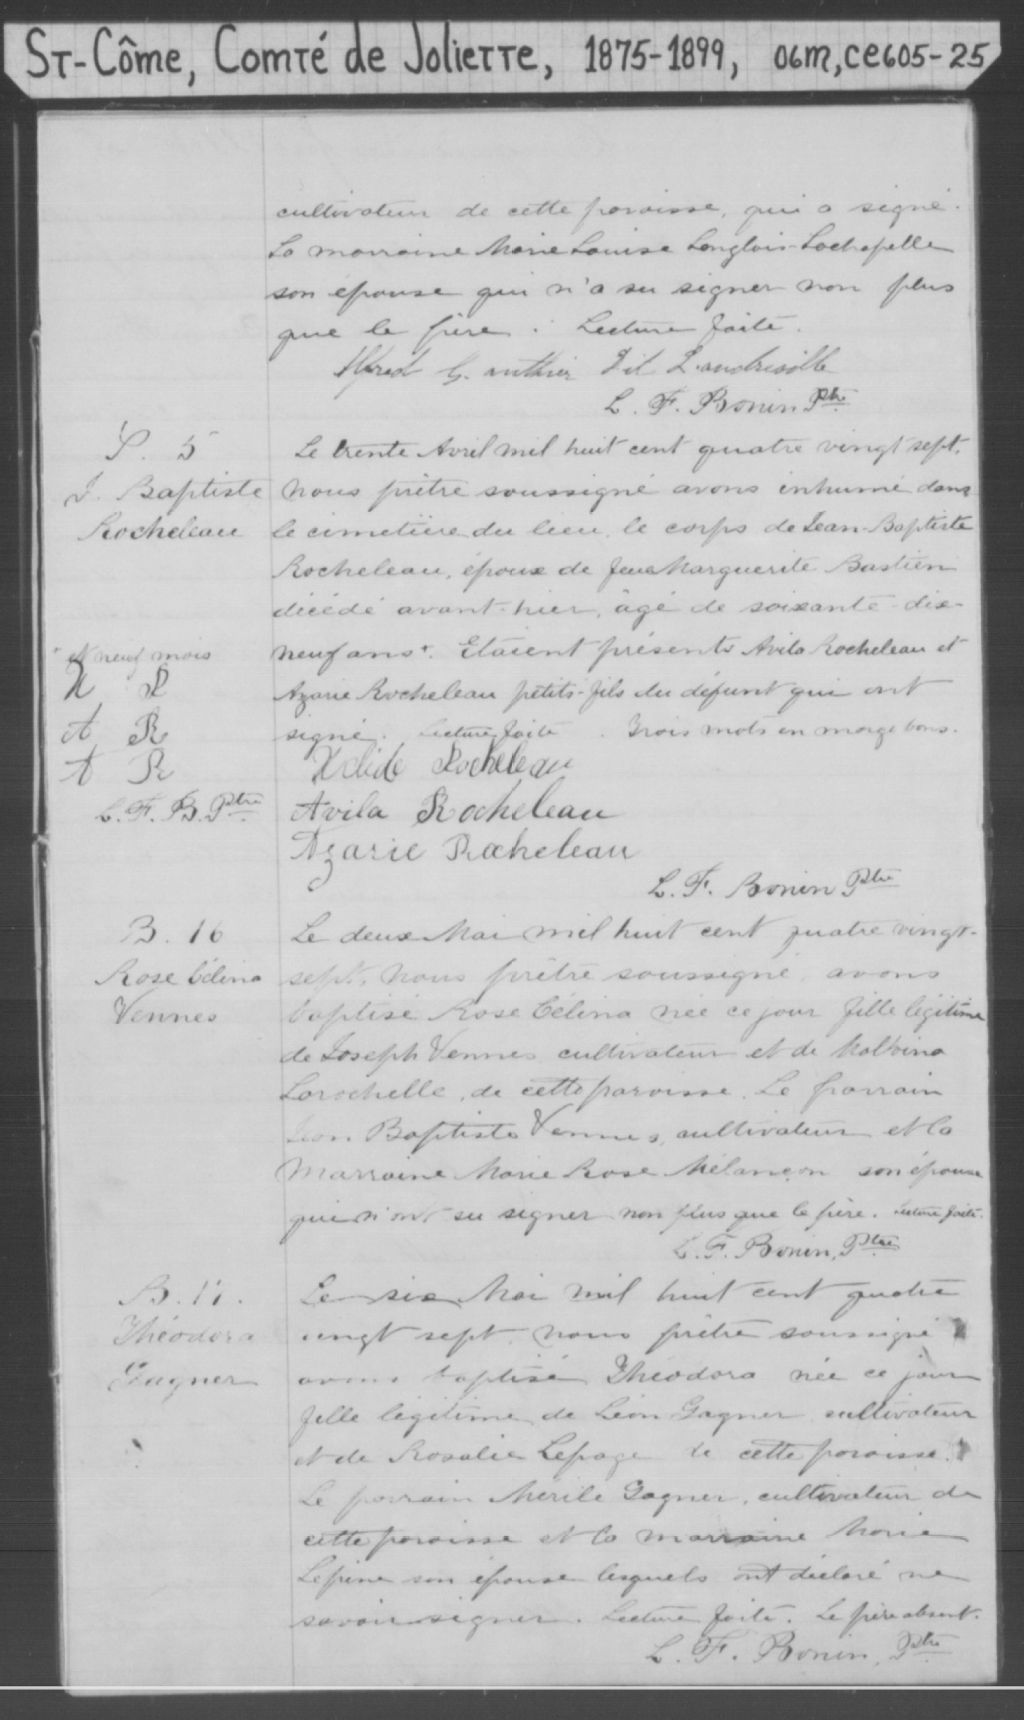 St-Côme, Comté de Joliette, 1875-1899, 06M,CE605-25
cultivateur de cette paroisse, qui a signé.
La marraine Marie Louise Langlois-Lachapelle
son épouse qui n'a su signer non plus
que le père. Lecture faite.
Alfred Gauthier Dit Landreville
L. F. Bonin Ptre
S. 5
J. Baptiste
Rocheleau
Le trente Avril mil huit cent quatre vingt sept,
nous prêtre soussigné avons inhumé dans
le cimetière du lieu, le corps de Jean-Baptiste
Rocheleau, époux de feue Marguerite Bastien
décédé avant-hier, âgé de soixante-dix-
neuf ans+. Etaient présents Avila Rocheleau et
Azarie Rocheleau petits-fils du défunt qui ont
signé. Lecture faite. Trois mots en marge bons.
+ et neuf mois
X R
A R
A R
L. F. B. Ptre
Rocheleau
Avila Rocheleau
Azarie Rocheleau
L. F. Bonin Ptre
B. 16
Rose Célina
Vennes
Le deux Mai mil huit cent quatre vingt-
sept, nous prêtre soussigné, avons
baptisé Rose Célina née ce jour fille légitime
de Joseph Vennes cultivateur et de Malvina
Larochelle, de cette paroisse. Le parrain
Jean Baptiste Vennes, cultivateur et la
Marraine Marie Rose Mélançon son épouse
qui n'ont su signer non plus que le père. Lecture faite.
L. F. Bonin, Ptre
B. 17.
Théodora
Gagner
Le six Mai mil huit cent quatre
vingt sept, nous prêtre soussigné
avons baptisé Théodora née ce jour
fille légitime de Léon Gagner cultivateur
et de Rosalie Lepage de cette paroisse.
Le parrain Gagner, cultivateur de
cette paroisse et la marraine Marie
Lépine son épouse lesquels ont déclaré ne
savoir signer. Lecture faite. Le père absent.
L. F. Bonin, Ptre